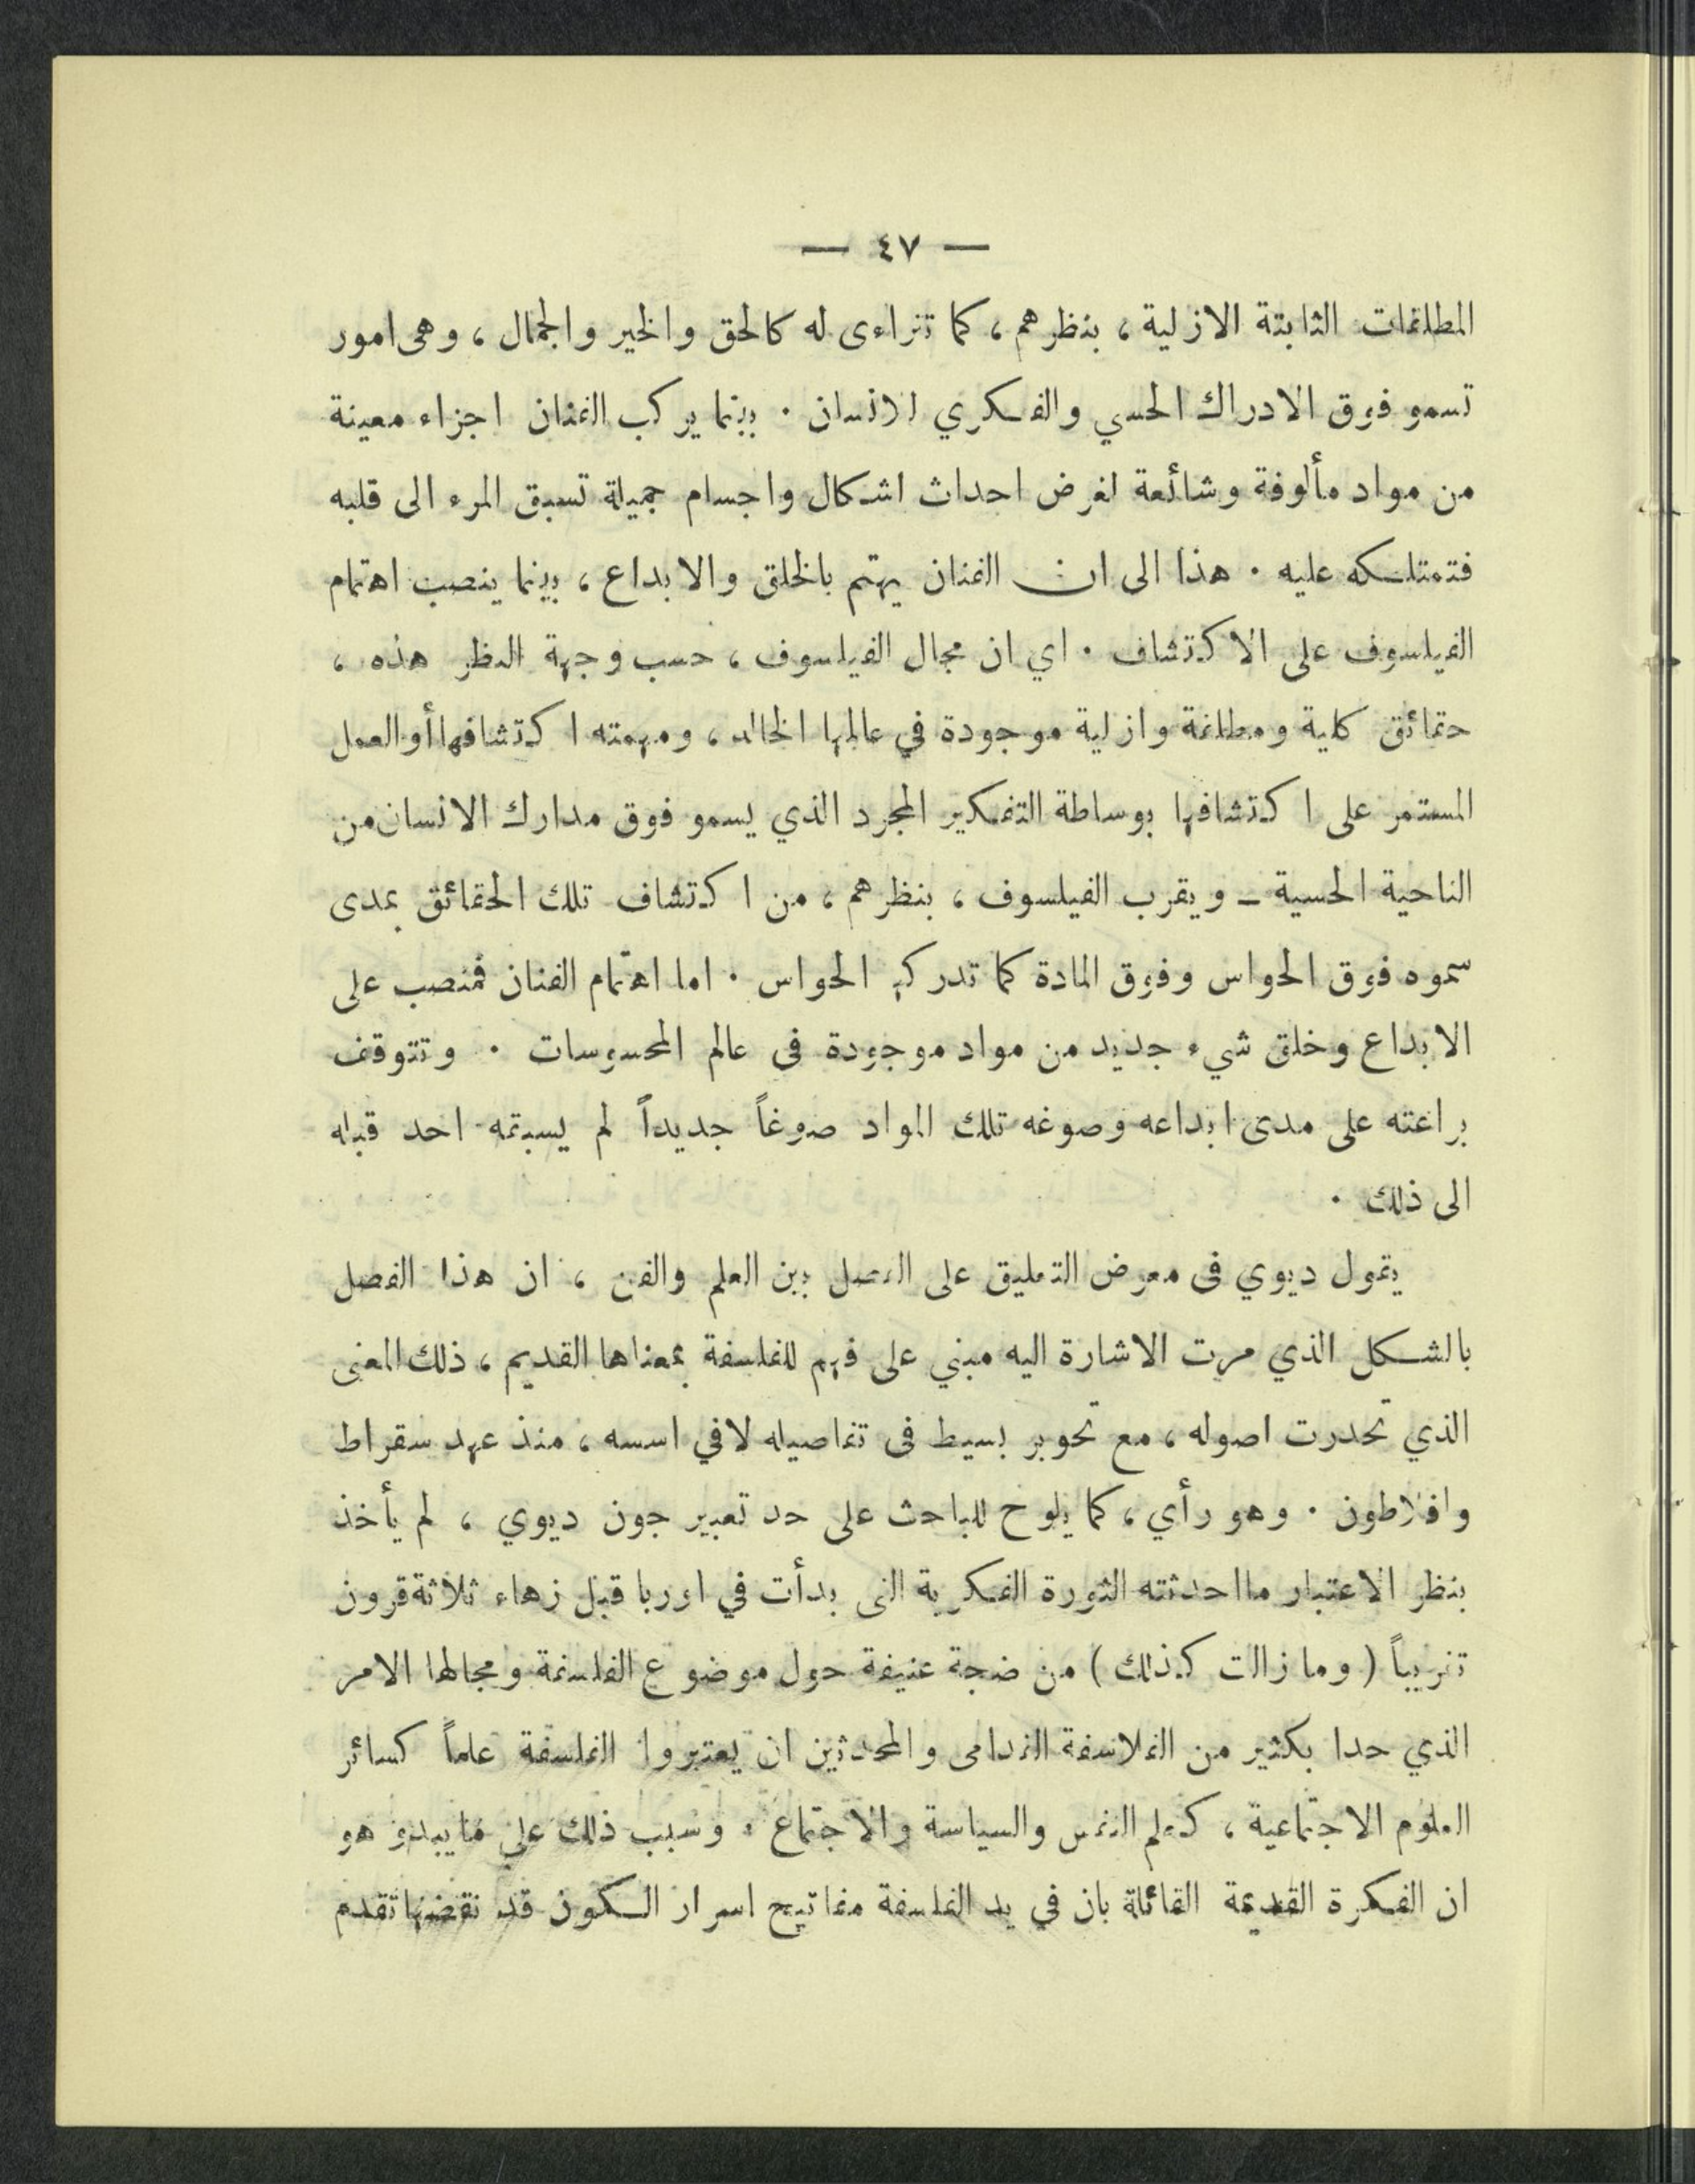 — ٤٧ —
المطلقات الثابتة الازلية ، بنظرهم ، كما تتراءى له كالحق والخير والجمال ، وهي امور
تسمو فوق الادراك الحسي والفكري للانسان . بينما يركب الفنان اجزاء معينة
من مواد مألوفة وشائعة لغرض احداث اشكال واجسام جميلة تسبق المرء الى قلبه
فتمتلكه عليه . هذا الى ان الفنان يهتم بالخلق والابداع ، بينما ينصب اهتمام
الفيلسوف على الاكتشاف . اي ان مجال الفيلسوف ، حسب وجهة النظر هذه ،
حقائق كلية ومطلقة وازلية موجودة في عالمها الخالد ، ومهمته اكتشافها أو العمل
المستمر على اكتشافها بوساطة التفكير المجرد الذي يسمو فوق مدارك الانسان من
الناحية الحسية – ويقرب الفيلسوف ، بنظرهم ، من اكتشاف تلك الحقائق بمدى
سموه فوق الحواس وفوق المادة كما تدركها الحواس . اما اهتمام الفنان فمنصب على
الابداع وخلق شيء جديد من مواد موجودة في عالم المحسوسات . وتتوقف
براعته على مدى ابداعه وصوغه تلك المواد صوغاً جديداً لم يسبقه احد قبله
الى ذلك .
يقول ديوي في معرض التعليق على الفصل بين العلم والفن ، ان هذا الفصل
بالشكل الذي مرت الاشارة اليه مبني على فهم للفلسفة بمعناها القديم ، ذلك المعنى
الذي تحدرت اصوله ، مع تحوير بسيط في تفاصيله لا في اسسه ، منذ عهد سقراط
وافلاطون . وهو رأي ، كما يلوح للباحث على حد تعبير جون ديوي ، لم يأخذ
بنظر الاعتبار ما احدثته الثورة الفكرية التي بدأت في اوربا قبل زهاء ثلاثة قرون
تقريباً ( وما زالت كذلك ) من ضجة عنيفة حول موضوع الفلسفة ومجالها الامر
الذي حدا بكثير من الفلاسفة القدامى والمحدثين ان يعتبروا الفلسفة علماً كسائر
العلوم الاجتماعية ، كعلم النفس والسياسة والاجتماع . وسبب ذلك على ما يبدو هو
ان الفكرة القديمة القائلة بان في يد الفلسفة مفاتيح اسرار الكون قد نقضها تقدم